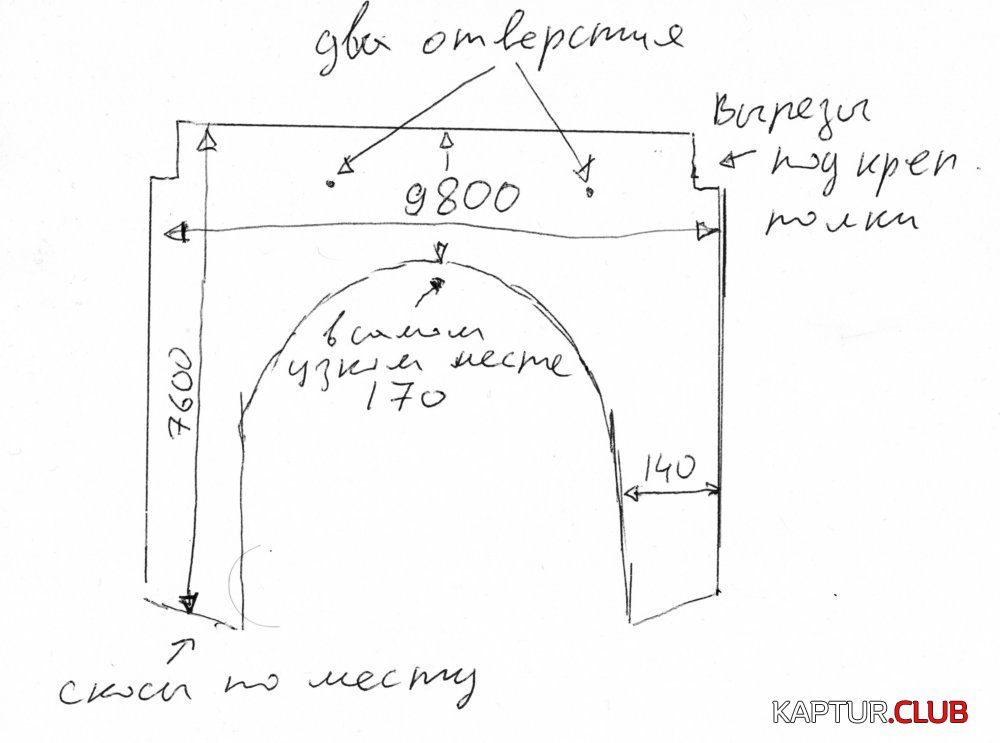 два отверстия
вырезы
под креп.
полки
9800
в самом
узком месте
170
7600
140
скосы по месту
KAPTUR.CLUB